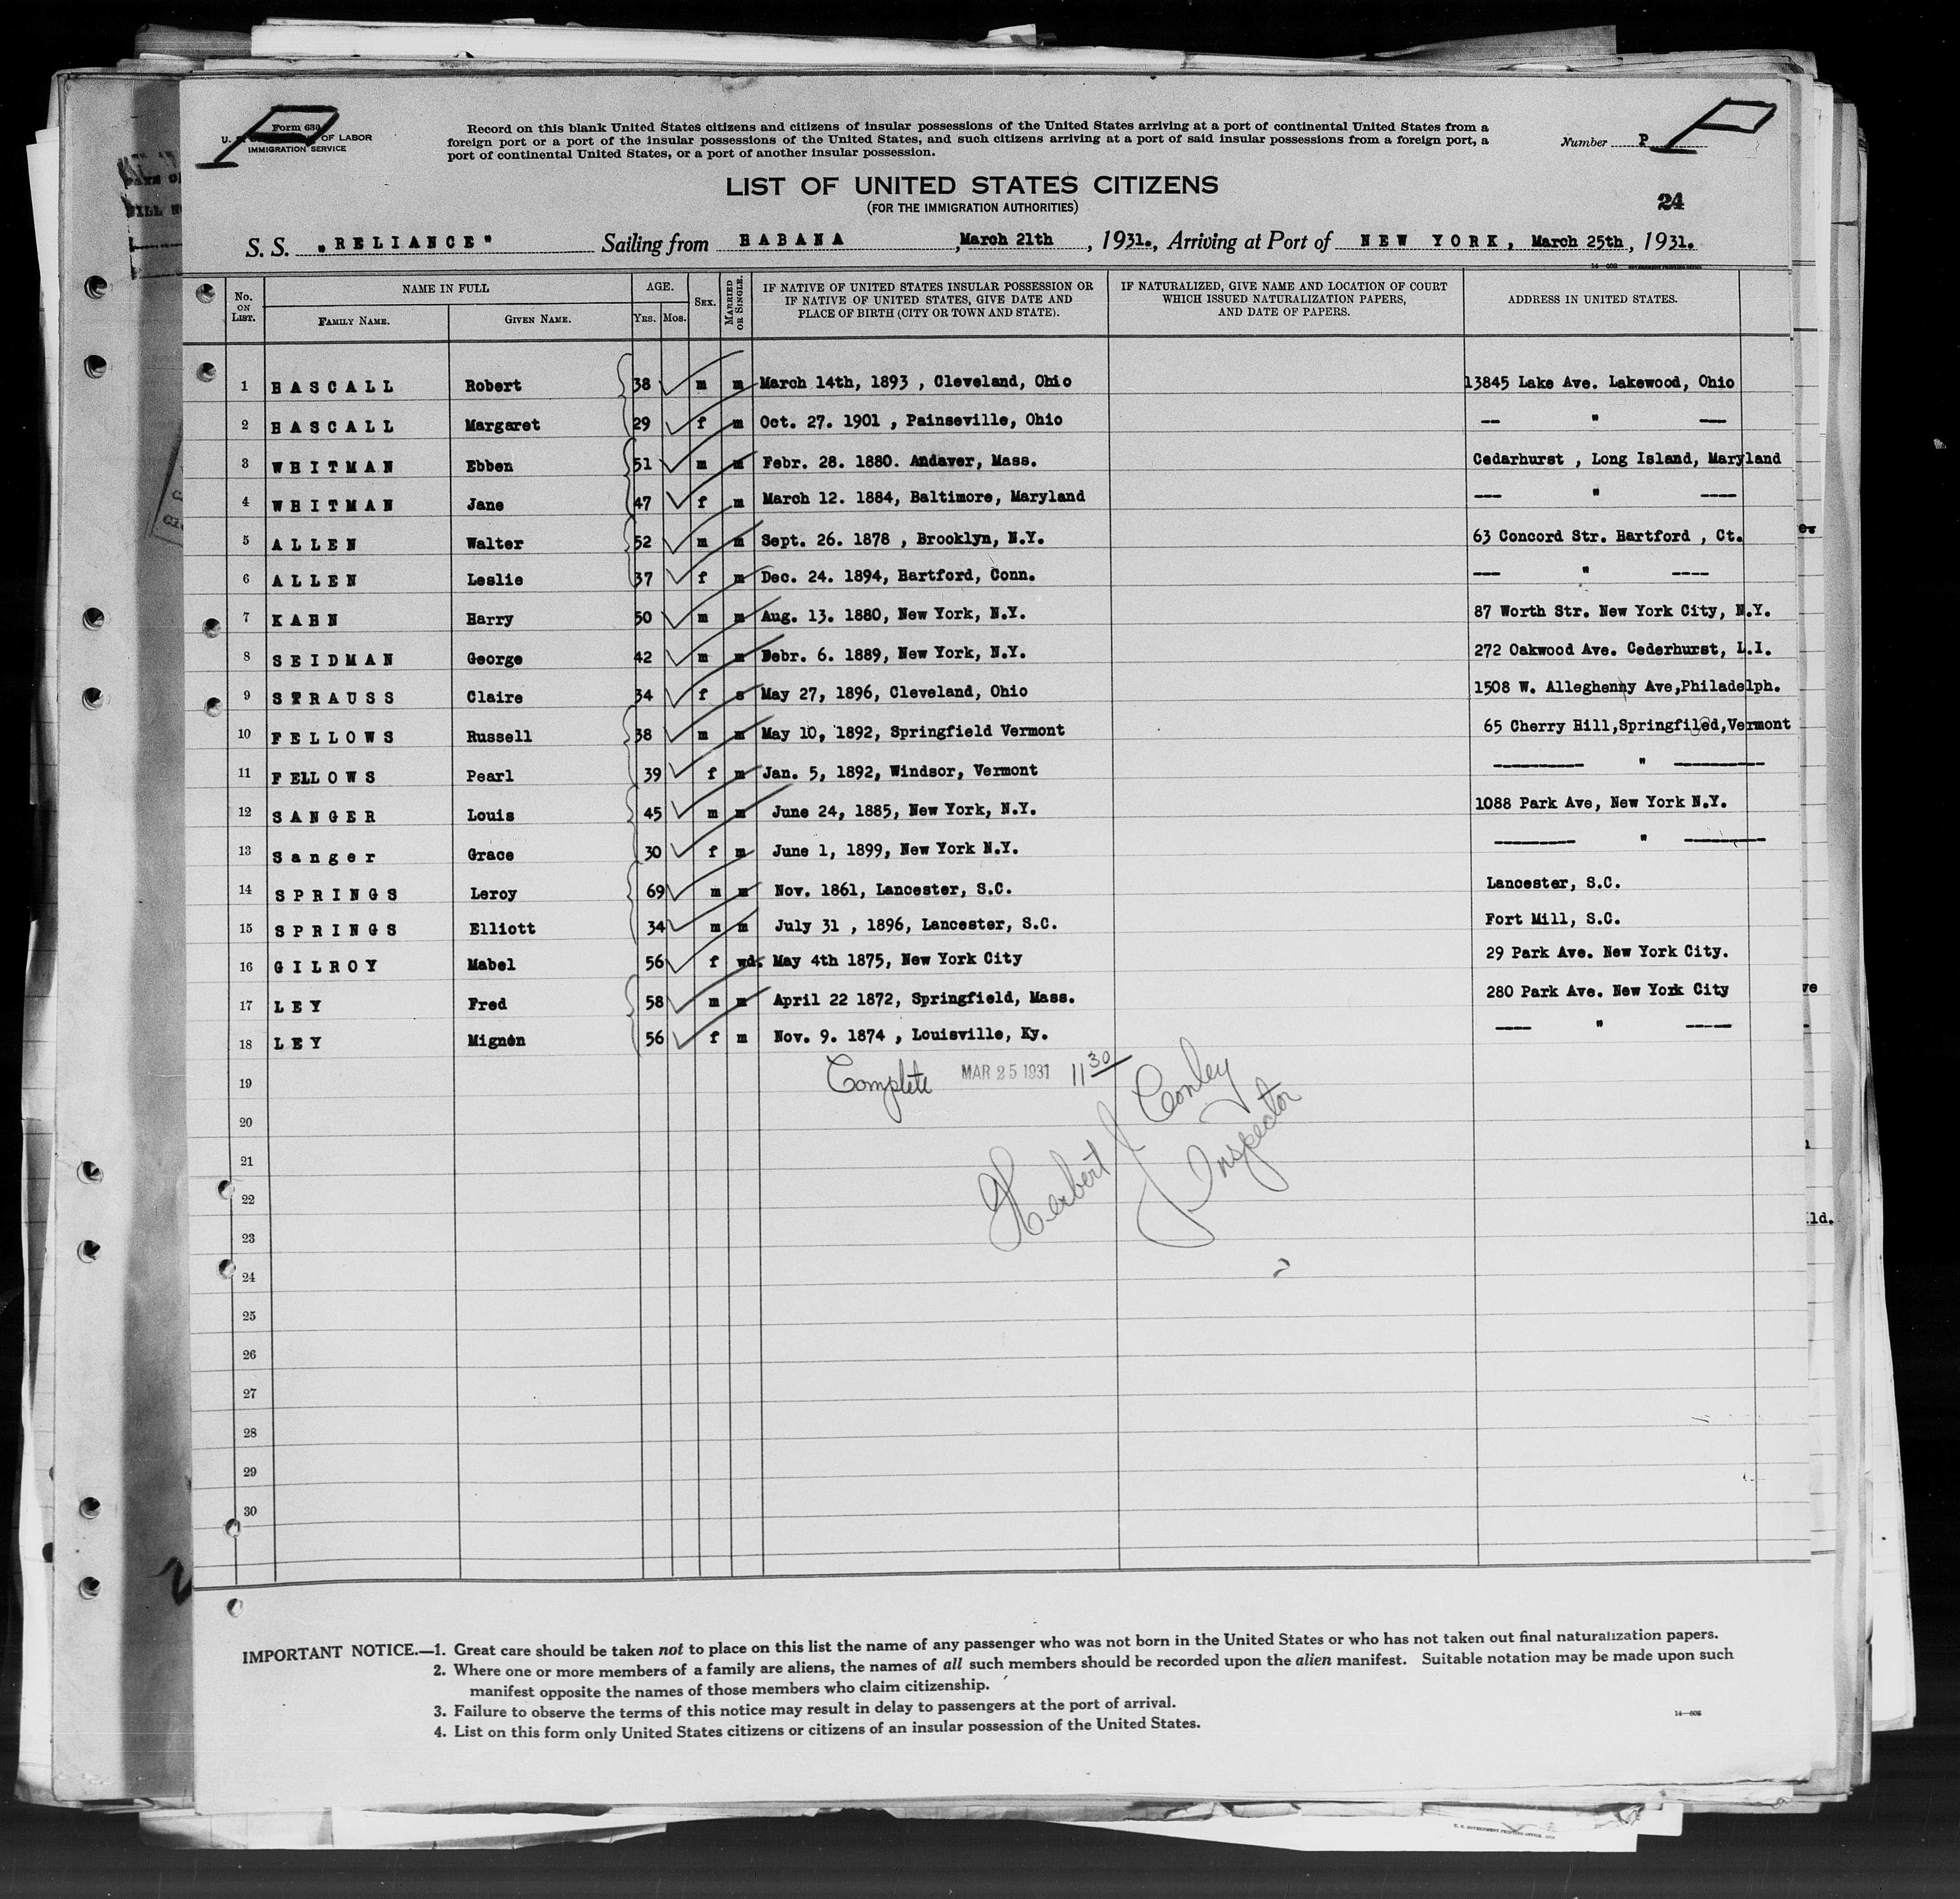 Form 630
U. S. OF LABOR
IMMIGRATION SERVICE
Record on this blank United States citizens and citizens of insular possessions of the United States arriving at a port of continental United States from a
foreign port or a port of the insular possessions of the United States, and such citizens arriving at a port of said insular possessions from a foreign port, a
port of continental United States, or a port of another insular possession.
Number P
LIST OF UNITED STATES CITIZENS
(FOR THE IMMIGRATION AUTHORITIES)
24
S. S. "RELIANCE" Sailing from HABANA, March 21th, 1931., Arriving at Port of NEW YORK, March 25th, 1931.
No. ON LIST. NAME IN FULL FAMILY NAME. GIVEN NAME. AGE. YRS. MOS. SEX. MARRIED OR SINGLE. IF NATIVE OF UNITED STATES INSULAR POSSESSION OR IF NATIVE OF UNITED STATES, GIVE DATE AND PLACE OF BIRTH (CITY OR TOWN AND STATE). IF NATURALIZED, GIVE NAME AND LOCATION OF COURT WHICH ISSUED NATURALIZATION PAPERS, AND DATE OF PAPERS. ADDRESS IN UNITED STATES.
1 HASCALL Robert 38 m m March 14th, 1893 , Cleveland, Ohio 13845 Lake Ave. Lakewood, Ohio
2 HASCALL Margaret 29 f m Oct. 27. 1901 , Painseville, Ohio -- " ---
3 WHITMAN Ebben 51 m m Febr. 28. 1880. Andaver, Mass. Cedarhurst , Long Island, Maryland
4 WHITMAN Jane 47 f m March 12. 1884, Baltimore, Maryland --- " ----
5 ALLEN Walter 52 m m Sept. 26. 1878 , Brooklyn, N.Y. 63 Concord Str. Hartford , Ct.
6 ALLEN Leslie 37 f m Dec. 24. 1894, Hartford, Conn. --- " ----
7 KAHN Harry 50 m m Aug. 13. 1880, New York, N.Y. 87 Worth Str. New York City, N.Y.
8 SEIDMAN George 42 m m Febr. 6. 1889, New York, N.Y. 272 Oakwood Ave. Cederhurst, L.I.
9 STRAUSS Claire 34 f s May 27, 1896, Cleveland, Ohio 1508 W. Alleghenny Ave,Philadelph.
10 FELLOWS Russell 38 m m May 10, 1892, Springfield Vermont 65 Cherry Hill,Springfiled,Vermont
11 FELLOWS Pearl 39 f m Jan. 5, 1892, Windsor, Vermont ---------- " ----------
12 SANGER Louis 45 m m June 24, 1885, New York, N.Y. 1088 Park Ave, New York N.Y.
13 Sanger Grace 30 f m June 1, 1899, New York N.Y. --------- " ---------
14 SPRINGS Leroy 69 m m Nov. 1861, Lancester, S.C. Lancester, S.C.
15 SPRINGS Elliott 34 m m July 31 , 1896, Lancester, S.C. Fort Mill, S.C.
16 GILROY Mabel 56 f wd. May 4th 1875, New York City 29 Park Ave. New York City.
17 LEY Fred 58 m m April 22 1872, Springfield, Mass. 280 Park Ave. New York City
18 LEY Mignon 56 f m Nov. 9. 1874 , Louisville, Ky. ---- " -----
19 Complete MAR 25 1931 11 30
Herbert J. Conley
Inspector
20
21
22
23
24
25
26
27
28
29
30
IMPORTANT NOTICE.—1. Great care should be taken not to place on this list the name of any passenger who was not born in the United States or who has not taken out final naturalization papers.
2. Where one or more members of a family are aliens, the names of all such members should be recorded upon the alien manifest. Suitable notation may be made upon such
manifest opposite the names of those members who claim citizenship.
3. Failure to observe the terms of this notice may result in delay to passengers at the port of arrival.
4. List on this form only United States citizens or citizens of an insular possession of the United States.